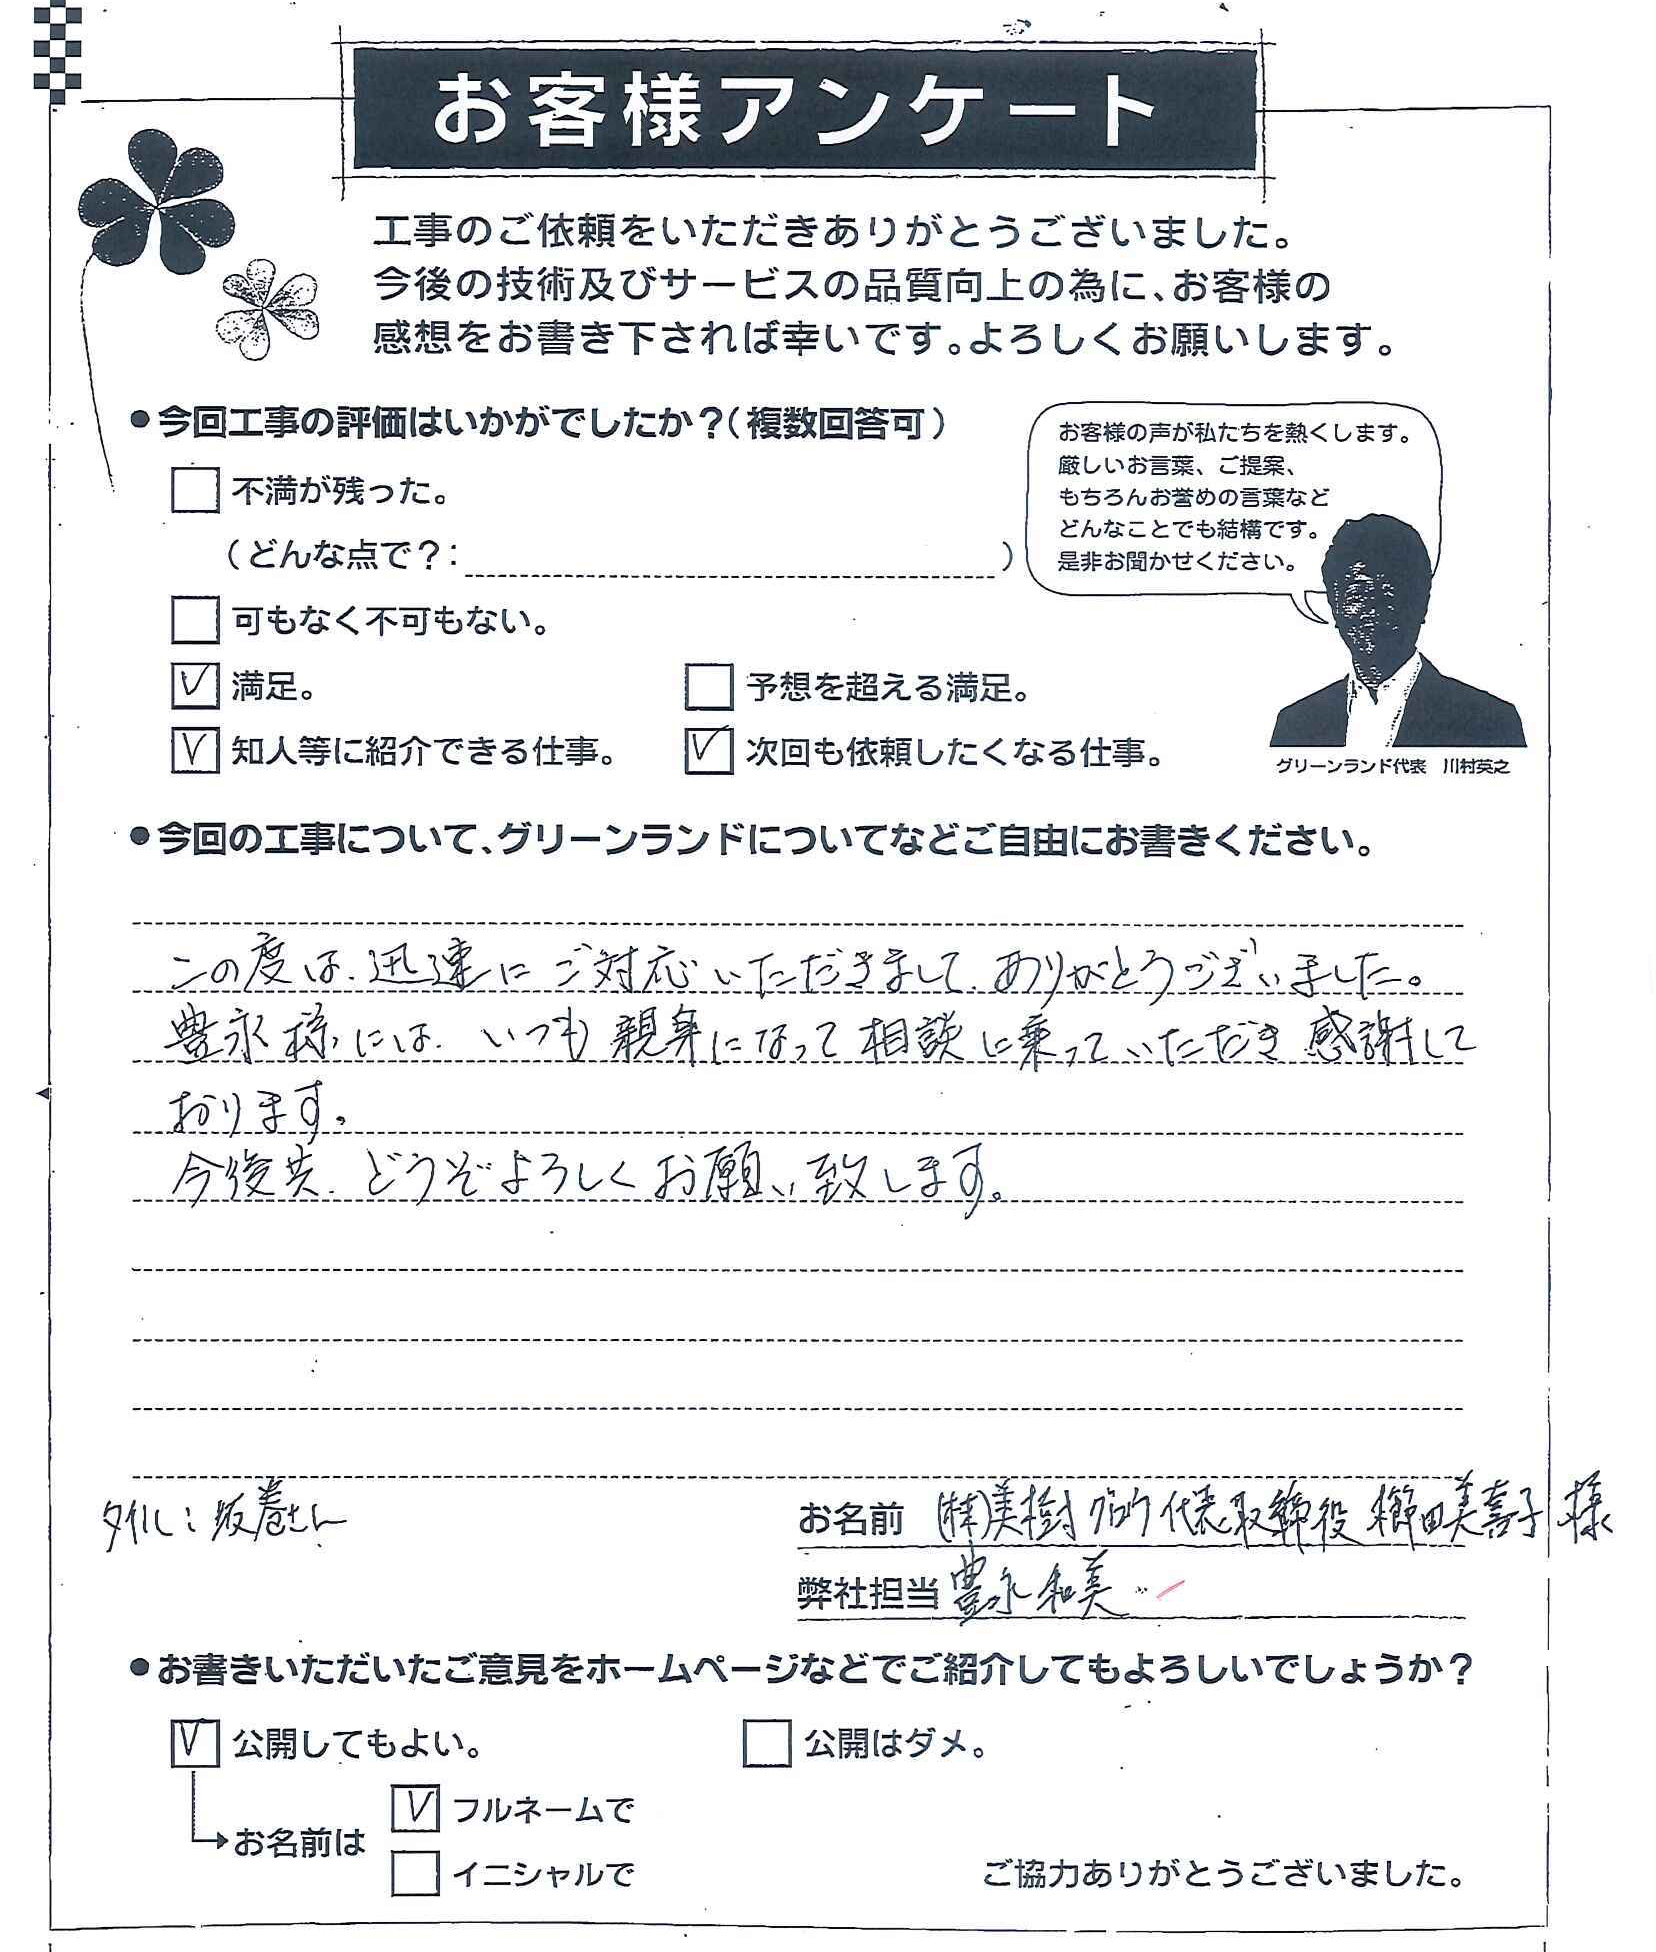 お客様アンケート
工事のご依頼をいただきありがとうございました。
今後の技術及びサービスの品質向上の為に、お客様の
感想をお書き下されば幸いです。よろしくお願いします。
●今回工事の評価はいかがでしたか？（複数回答可）
不満が残った。
（どんな点で？：）
可もなく不可もない。
満足。
予想を超える満足。
知人等に紹介できる仕事。
次回も依頼したくなる仕事。
お客様の声が私たちを熱くします。
厳しいお言葉、ご提案、
もちろんお誉めの言葉など
どんなことでも結構です。
是非お聞かせください。
グリーンランド代表　川村英之
●今回の工事について、グリーンランドについてなどご自由にお書きください。
この度は、迅速にご対応いただきまして、ありがとうございました。
豊永様には、いつも親身になって相談に乗っていただき感謝して
おります。
今後共、どうぞよろしくお願い致します。
タイル：坂巻さん
お名前 (株)美樹 代表取締役 櫛田美喜子 様
弊社担当 豊永和美
●お書きいただいたご意見をホームページなどでご紹介してもよろしいでしょうか？
公開してもよい。
公開はダメ。
お名前は
フルネームで
イニシャルで
ご協力ありがとうございました。